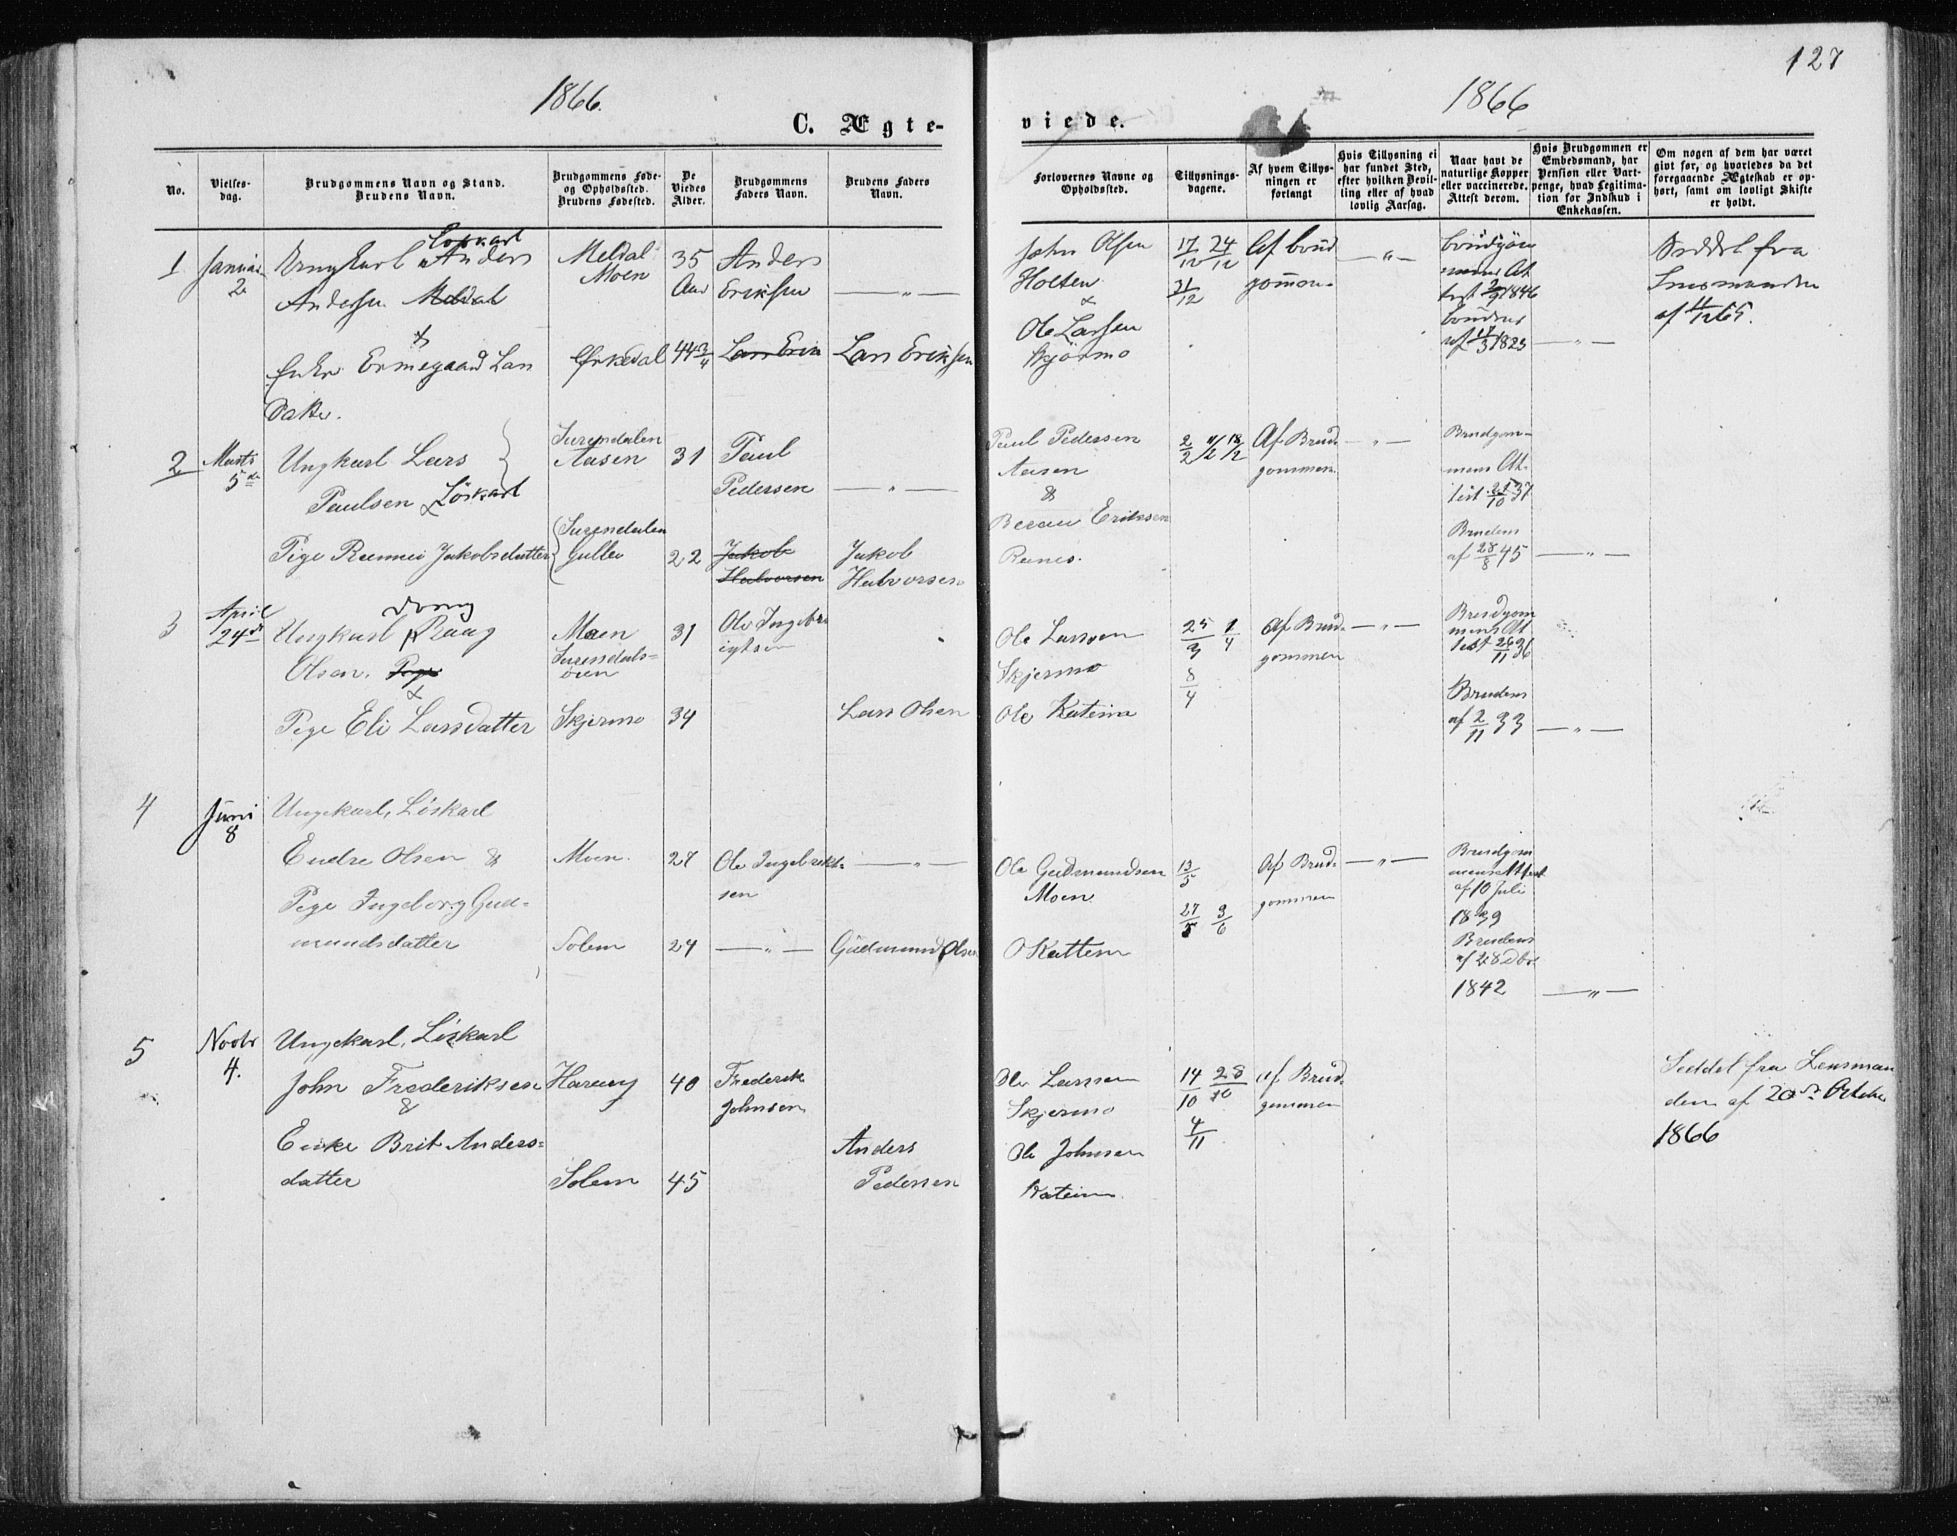 127
1866.
1866
C. Ægte-
viede.
No.
Vielses-
dag.
Brudgommens Navn og Stand.
Brudens Navn.
Brudgommens Føde-
og Opholdssted.
Brudens Fødested.
De
Viedes
Alder.
Brudgommens
Faders Navn.
Brudens Faders
Navn.
Forlovernes Navne og
Opholdssted.
Tillysnings-
dagene.
Af hvem Tillys-
ningen er
forlangt
Hvis Tillysning ei
har fundet Sted,
efter hvilken Bevil-
ling eller af hvad
lovlig Aarsag.
Naar havt de
naturlige Kopper
eller vaccinerede.
Attest derom.
Hvis Brudgommen er
Embedsmand, har
Pension eller Vart-
penge, hvad Legitima-
tion for Indskud i
Enkekassen.
Om nogen af dem har været
givt før, og hvorledes da det
foregaaende Ægteskab er op-
hørt, samt om lovligt Skifte
er holdt.
1
Januar
2
Ungkarl Anders
Andersen Meldal
&
Enke Ermegaard Lars
Datter.
Meldal
Moen
Ørkedal
35
Aar
44 3/4
Anders
Eriksen
Lars Erik
— " —
Lars Eriksen
John Olsen
Holten
&
Ole Larsen
Skjørmo
17/12 24/12
31/12
Af Brud
gommen
— " —
Brudgom
mens At
test 2/9 1846
Brudens
af 17/3 1823
— " —
Seddel fra
Lensmanden
af 11/12 65.
2
Marts
5te
Ungkarl Lars
Paulsen Löskarl
&
Pige Jakobsdatter
Surendalen
Aasen
Surendalen
Gulla
31
22
Paul
Pedersen
Jakob
Halvorsen
— " —
Jakob
Halvorsen
Paul Pedersen
Aasen
&
Eriksen
Ranes.
2/2 11/2 18/2
Af Brud-
gommen
— " —
Brudgom-
mens At-
test 21/10 37
Brudens
af 28/8 45
— " —
3
April
24de
dreng
Ungkarl
Olsen. Pige
&
Pige Eli Larsdatter
Moen
Surendals-
ören
Skjermo
31
34
Ole Ingebr
igtsen
Lars Olsen
Ole Larsen
Skjermo
Ole Kattem
25/3 1/4
8/4
Af Brud-
gommen
— " —
Brudgom
mens At
test 26/11 36
Brudens
af 2/11 33
— " —
4
Juni
8
Ungekarl, Löskarl
Endre Olsen &
Pige Ingeborg Gud-
mundsdatter
Moen.
Solem
27
24
Ole Ingebrikt-
sen
— " —
— " —
Gudmund Olsen
Ole Gudmundsen
Moen
O Kattem
13/5
27/5 3/6
Af Brud-
gommen
— " —
Brudgom
mens Attest
af 10 Juli
1839
Brudens
af 28 Dbr.
1842
— " —
5
Novbr
4.
Ungekarl, Löskarl
John Frederiksen
&
Enke Brit Anders-
datter
Harang
Solem
40
45
Frederik
Johnsen
Anders
Pedersen
Ole Larsen
Skjermo
Ole Johnsen
Kattem
14/10 28/10
4/11
af Brud-
gommen
Seddel fra Lensman
den af 20de October
1866